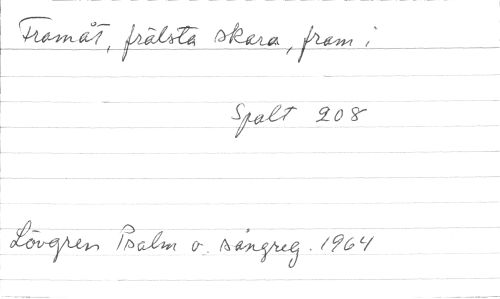 Framåt, frälsta skara, fram i
Spalt 208
Lövgren Psalm o. sångreg. 1964